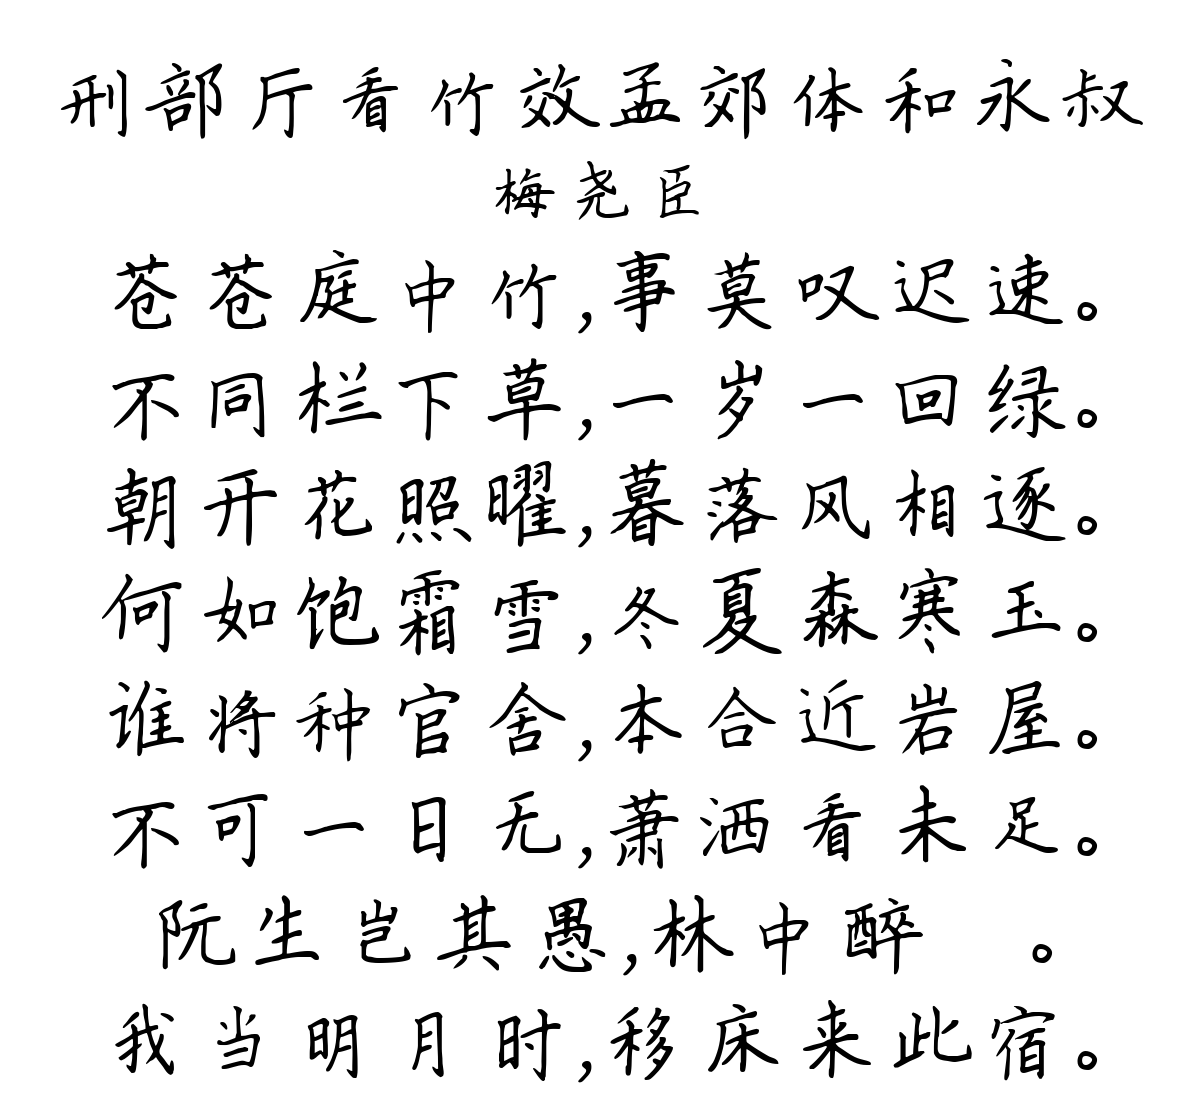 刑部厅看竹效孟郊体和永叔
梅尧臣
苍苍庭中竹,事莫叹迟速。
不同栏下草,一岁一回绿。
朝开花照曜,暮落风相逐。
何如饱霜雪,冬夏森寒玉。
谁将种官舍,本合近岩屋。
不可一日无,萧洒看未足。
阮生岂其愚,林中醉 。
我当明月时,移床来此宿。